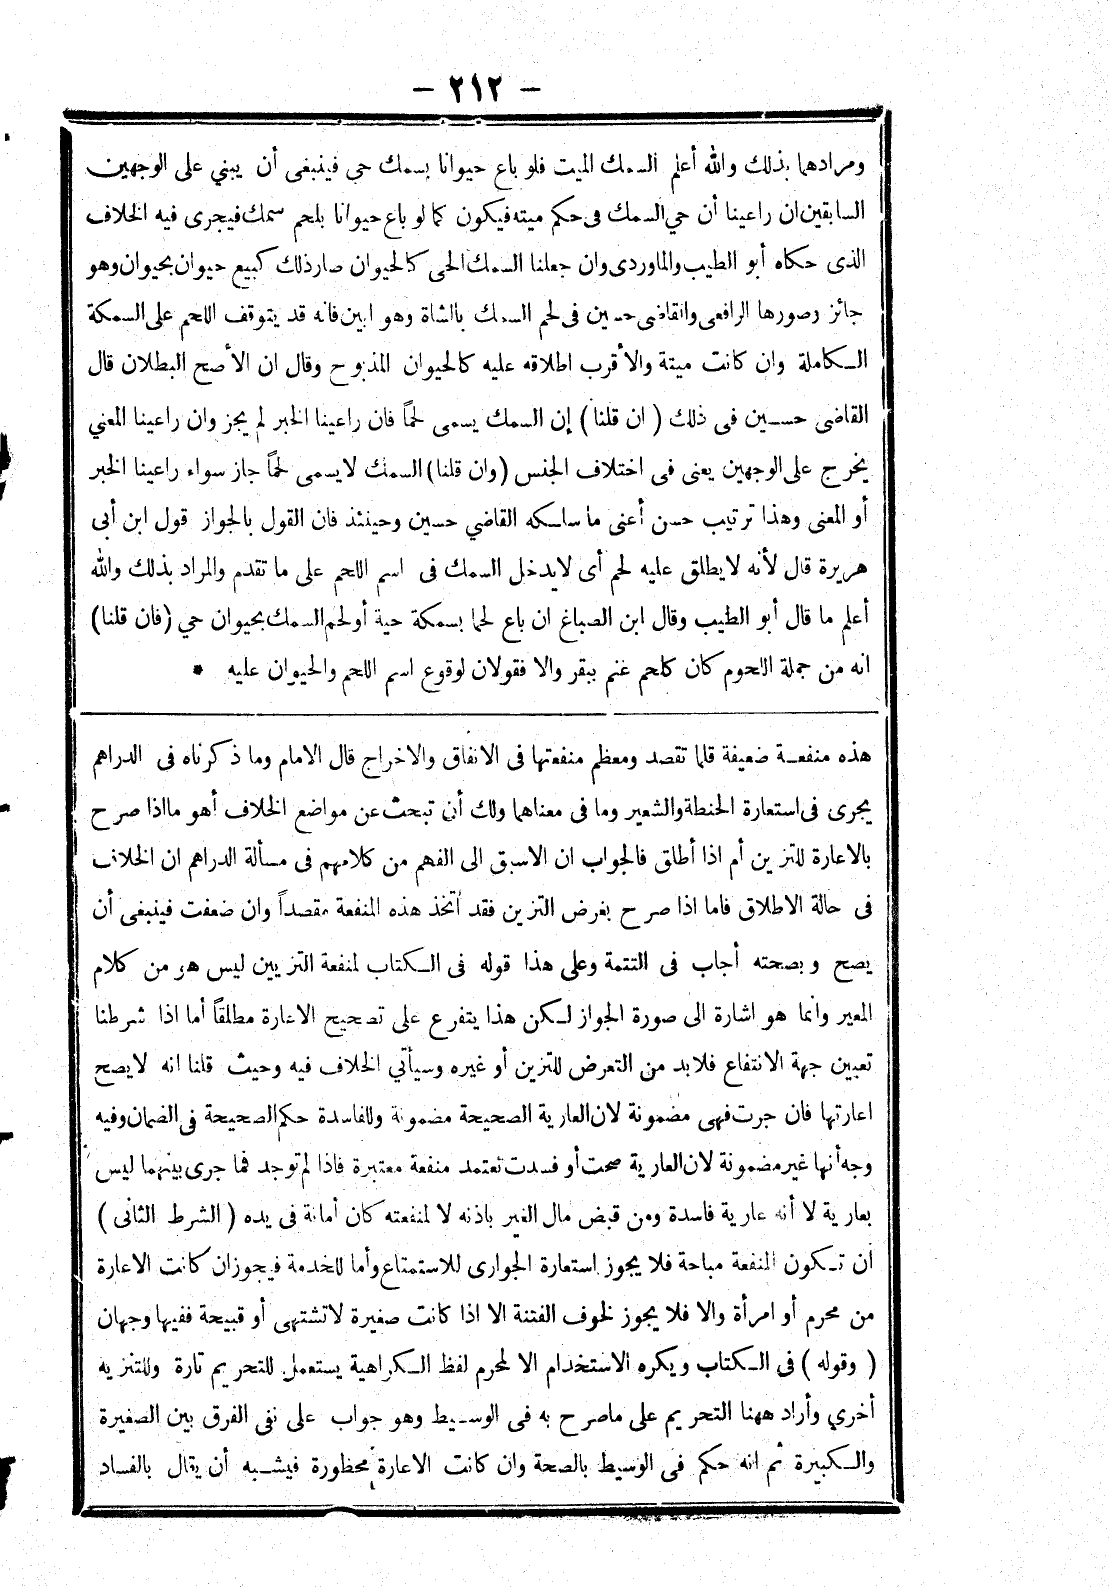 - ٢١٢ -
ومرادهما بذلك والله أعلم السمك الميت فلو باع حيوانا بسمك حى فينبغى أن يبني على الوجهين
السابقين ان راعينا أن حي السمك فى حكم ميته فيكون كما لو باع حيوانا بلحم سمك فيجرى فيه الخلاف
الذى حكاه أبو الطيب والماوردى وان جعلنا السمك الحى كالحيوان صار ذلك كبيع حيوان بحيوان وهو
جائز وصورها الرافعى والقاضى حسين فى لحم السمك بالشاة وهو ابين فانه قد يتوقف اللحم على السمكة
الكاملة وان كانت ميتة والأقرب اطلاقه عليه كالحيوان المذبوح وقال ان الأصح البطلان قال
القاضى حسين فى ذلك ( ان قلنا ) إن السمك يسمى لحماً فان راعينا الخبر لم يجز وان راعينا المعني
يخرج على الوجهين يعنى فى اختلاف الجنس (وان قلنا) السمك لايسمى لحماً جاز سواء راعينا الخبر
أو المعنى وهذا ترتيب حسن أعنى ماسلكه القاضي حسين وحينئذ فان القول بالجواز قول ابن أبى
هريرة قال لأنه لا يطلق عليه لحم أى لايدخل السمك فى اسم اللحم على ما تقدم والمراد بذلك والله
أعلم ما قال أبو الطيب وقال ابن الصباغ ان باع لحما بسمكة حية أو لحم السمك بحيوان حي (فان قلنا)
انه من جملة اللحوم كان كلحم غنم ببقر والا فقولان لوقوع اسم اللحم والحيوان عليه *
هذه منفعة ضعيفة قلما تقصد ومعظم منفعتها فى الانفاق والاخراج قال الامام وما ذكرناه فى الدراهم
يجرى فى استعارة الحنطة والشعير وما فى معناهما ولك أن تبحث عن مواضع الخلاف أهو ما اذا صرح
بالاعارة للتزين أم اذا أطلق فالجواب ان الاسبق الى الفهم من كلامهم فى مسألة الدراهم ان الخلاف
فى حالة الاطلاق فاما اذا صرح بغرض التزين فقد أتخذ هذه المنفعة مقصداً وان ضعفت فينبغى أن
يصح وبصحته أجاب فى التتمة وعلى هذا قوله فى الكتاب لمنفعة التزيين ليس هو من كلام
المعير وانما هو اشارة الى صورة الجواز لكن هذا يتفرع على تصحيح الاعارة مطلقاً أما اذا شرطنا
تعيين جهة الانتفاع فلابد من التعرض للتزين أو غيره وسيأتي الخلاف فيه وحيث قلنا انه لايصح
اعارتها فان جرت فهى مضمونة لان العارية الصحيحة مضمونة وللفاسدة حكم الصحيحة فى الضمان وفيه
وجه أنها غير مضمونة لان العارية صحت أو فسدت تعتمد منفعة معتبرة فاذا لم توجد فما جرى بينهما ليس
بعارية لا أنه عارية فاسدة ومن قبض مال الغير باذنه لا لمنفعته كان أمانة فى يده ( الشرط الثانى )
ان تكون المنفعة مباحة فلا يجوز استعارة الجوارى للاستمتاع وأما للخدمة فيجوز ان كانت الاعارة
من محرم أو امرأة والا فلا يجوز لخوف الفتنة الا اذا كانت صغيرة لاتشتهى أو قبيحة ففيها وجهان
( وقوله ) فى الكتاب ويكره الاستخدام الا لمحرم لفظ الكراهية يستعمل للتحريم تارة وللتنزيه
أخري وأراد ههنا التحريم على ماصرح به فى الوسيط وهو جواب على نفى الفرق بين الصغيرة
والكبيرة ثم انه حكم فى الوسيط بالصحة وان كانت الاعارة محظورة فيشبه أن يقال بالفساد